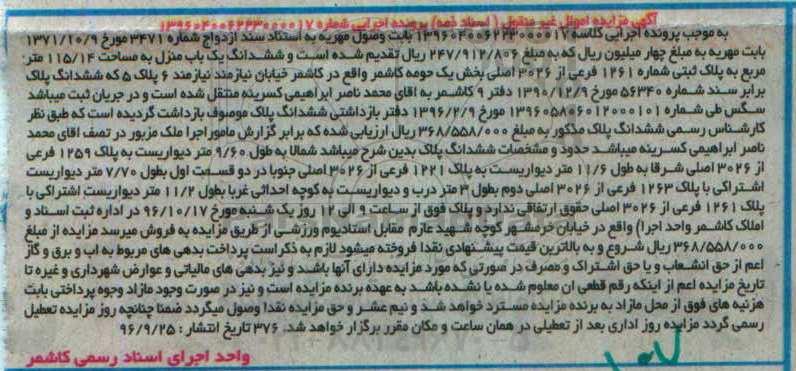 آگهی مزایده اموال غیر منقول ( اسناد ذمه) پرونده اجرایی شماره ۱۳۹۶۰۴۰۰۶۲۲۳۰۰۰۰۱۷
به موجب پرونده اجرایی کلاسه ۱۳۹۶۰۴۰۰۶۲۲۳۰۰۰۰۱۷ بابت وصول مهریه به استناد سند ازدواج شماره ۳۴۷۱ مورخ ۱۳۷۱/۱۰/۹
بابت مهریه به مبلغ چهار میلیون ریال که به مبلغ ۲۴۷/۹۱۲/۸۰۶ ریال تقدیم شده است و ششدانگ یک باب منزل به مساحت ۱۱۵/۱۴ متر
مربع به پلاک ثبتی شماره ۱۲۶۱ فرعی از ۳۰۲۶ اصلی بخش یک حومه کاشمر واقع در کاشمر خیابان نیازمند نیازمند ۶ پلاک ۵ که ششدانگ پلاک
برابر سند شماره ۵۶۳۴۰ مورخ ۱۳۹۰/۱۲/۹ دفتر ۹ کاشمر به اقای محمد ناصر ابراهیمی کسرینه منتقل شده است و در جریان ثبت میباشد
سگس طی شماره ۱۳۹۶۰۵۸۰۶۰۱۲۰۰۰۱۰۱ مورخ ۱۳۹۶/۲/۹ دفتر بازداشتی ششدانگ پلاک موصوف بازداشت گردیده است که طبق نظر
کارشناس رسمی ششدانگ پلاک مذکور به مبلغ ۳۶۸/۵۵۸/۰۰۰ ریال ارزیابی شده که برابر گزارش مامور اجرا ملک مزبور در تصف اقای محمد
ناصر ابراهیمی کسرینه میباشد حدود و مشخصات ششدانگ پلاک بدین شرح میباشد شمالا به طول ۹/۶۰ متر دیواریست به پلاک ۱۲۵۹ فرعی
از ۳۰۲۶ اصلی شرقا به طول ۱۱/۶ متر دیواریست به پلاک ۱۲۲۱ فرعی از ۳۰۲۶ اصلی جنوبا در دو قسمت اول بطول ۷/۷۰ متر دیواریست
اشتراکی با پلاک ۱۲۶۳ فرعی از ۳۰۲۶ اصلی دوم بطول ۳ متر درب و دیواریست به کوچه احداثی غربا بطول ۱۱/۲ متر دیواریست اشتراکی با
پلاک ۱۲۶۱ فرعی از ۳۰۲۶ اصلی حقوق ارتفاقی ندارد و پلاک فوق از ساعت ۹ الی ۱۲ روز یک شنبه مورخ ۹۶/۱۰/۱۷ در اداره ثبت اسناد و
املاک کاشمر واحد اجرا) واقع در خیابان خرمشهر کوچه شهید عازم مقابل استادیوم ورزشی از طریق مزایده به فروش میرسد مزایده از مبلغ
۳۶۸/۵۵۸/۰۰۰ ریال شروع و به بالاترین قیمت پیشنهادی نقدا فروخته میشود لازم به ذکر است پرداخت بدهی های مربوط به اب و برق و گاز
اعم از حق انشعاب و یا حق اشتراک و مصرف در صورتی که مورد مزایده دارای آنها باشد و نیز بدهی های مالیاتی و عوارض شهرداری و غیره تا
تاریخ مزایده اعم از اینکه رقم قطعی ان معلوم شده یا نشده باشد به عهده برنده مزایده است و نیز در صورت وجود مازاد وجوه پرداختی بابت
هزنیه های فوق از محل مازاد به برنده مزایده مسترد خواهد شد و نیم عشر و حق مزایده نقدا وصول میگردد ضمنا چنانچه روز مزایده تعطیل
رسمی گردد مزایده روز اداری بعد از تعطیلی در همان ساعت و مکان مقرر برگزار خواهد شد. ۳۷۶ تاریخ انتشار : ۹۶/۹/۲۵
واحد اجرای اسناد رسمی کاشمر